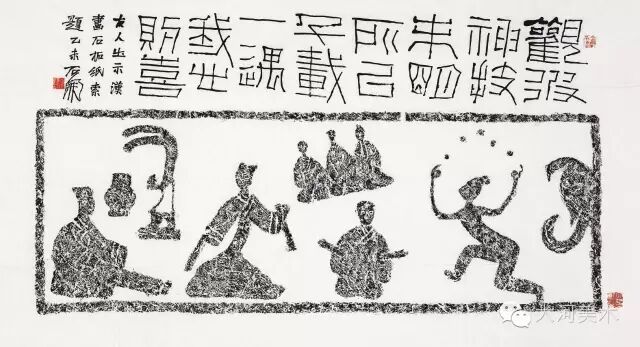 觀彼
神技
未明
所㠯
千載
一遇
我心
則喜
友人出示漢
畫石拓紙索
題乙未石開
大河美术